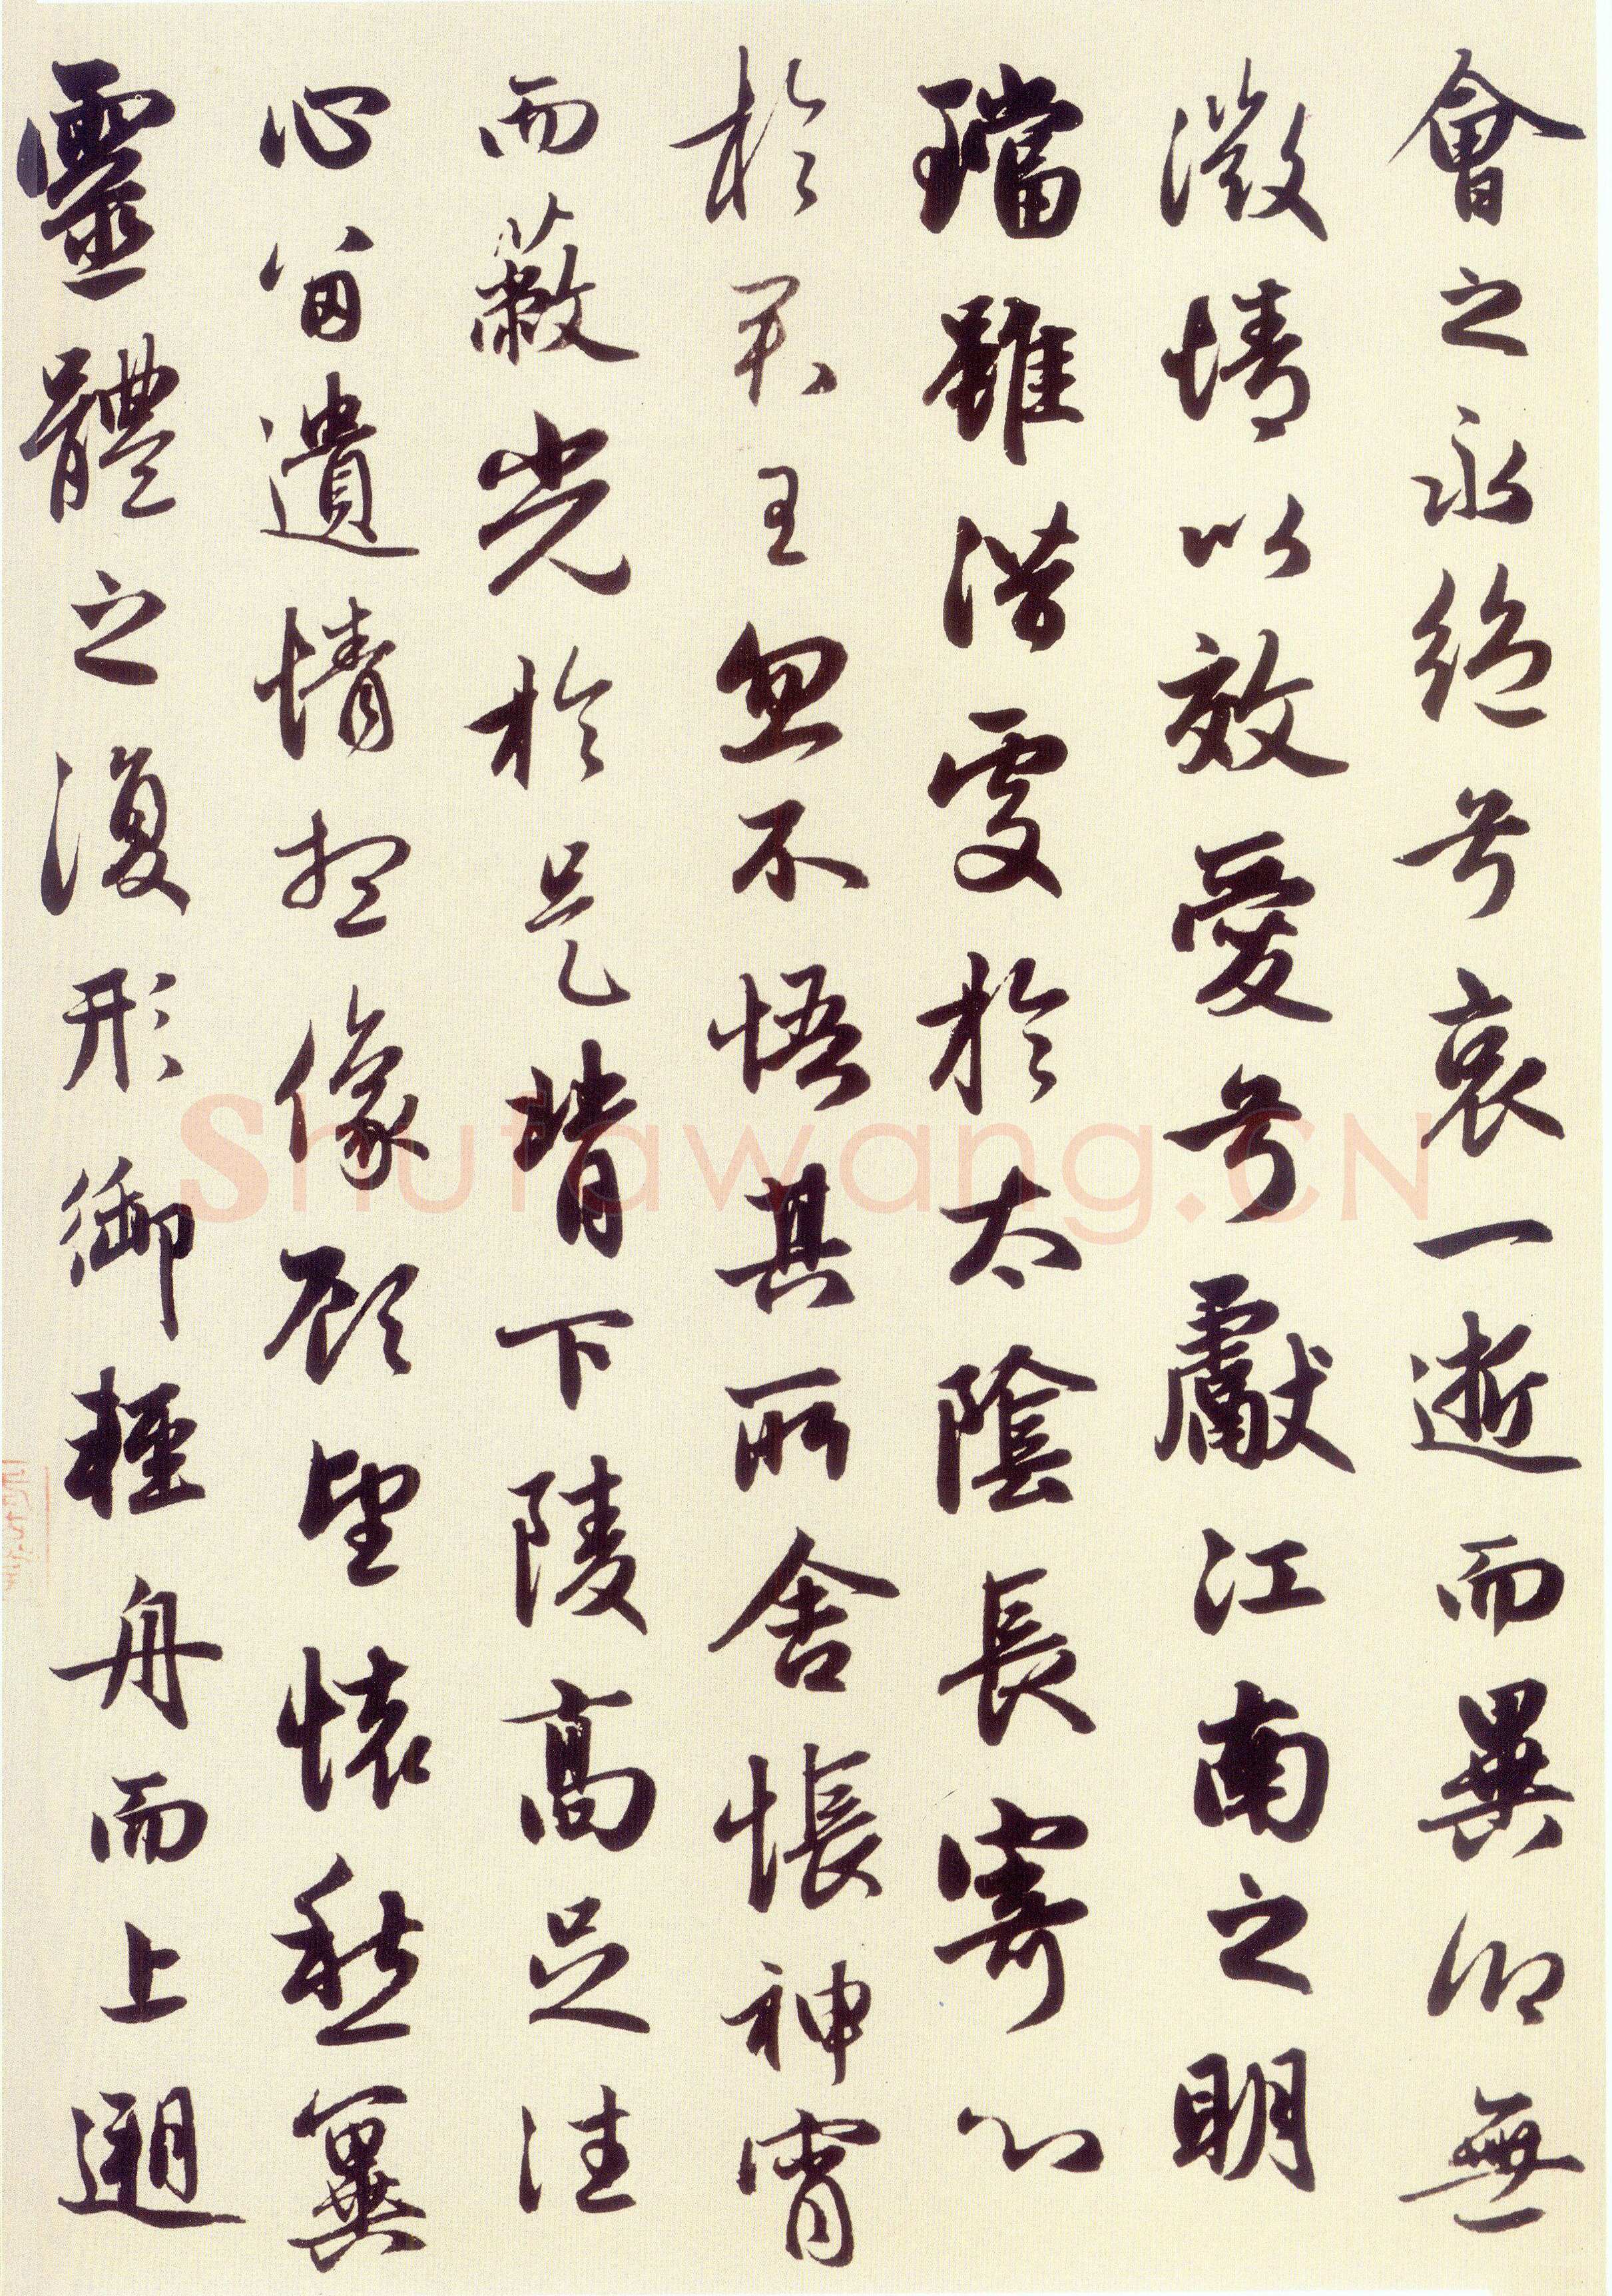 會之永絕兮哀一逝而異仰無
微情以效愛兮獻江南之明
璫雖潛處於太陰長寄心
於君王忽不悟其所舍悵神霄
而蔽光於是背下陵高足往
心留遺情想像顧望懷愁冀
靈體之復形御輕舟而上遡
Shufawang.CN